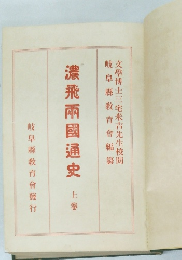 文學博士三宅米吉先生校閲
岐阜縣教育會編纂
濃飛兩國通史 上卷
岐阜縣教育會發行